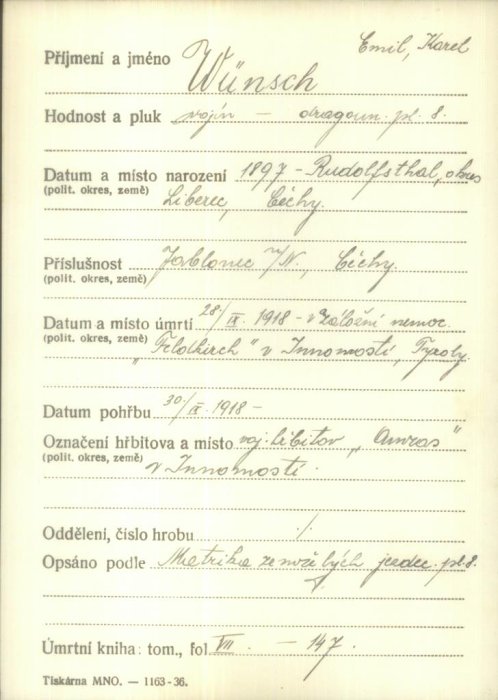 Emil, Karel
Příjmení a jméno Wünsch
Hodnost a pluk vojín — dragoun. pl. 8.
Datum a místo narození 1897 - Rudolfsthal, okres
(polit. okres, země) Liberec, Čechy.
Příslušnost Jablonec n/N, Čechy.
(polit. okres, země)
Datum a místo úmrtí 28./IX. 1918 - v Záložní nemoc.
(polit. okres, země) "Feldkirch" v Innomostí, Tyroly
Datum pohřbu 30/IX. 1918 -
Označení hřbitova a místo voj. hřbitov „Amras"
(polit. okres, země) v Innomostí.
Oddělení, číslo hrobu ./.
Opsáno podle Matrika zemřelých jezdec. pl. 8.
Úmrtní kniha: tom., fol. VII — 147.
Tiskárna MNO. — 1163-36.